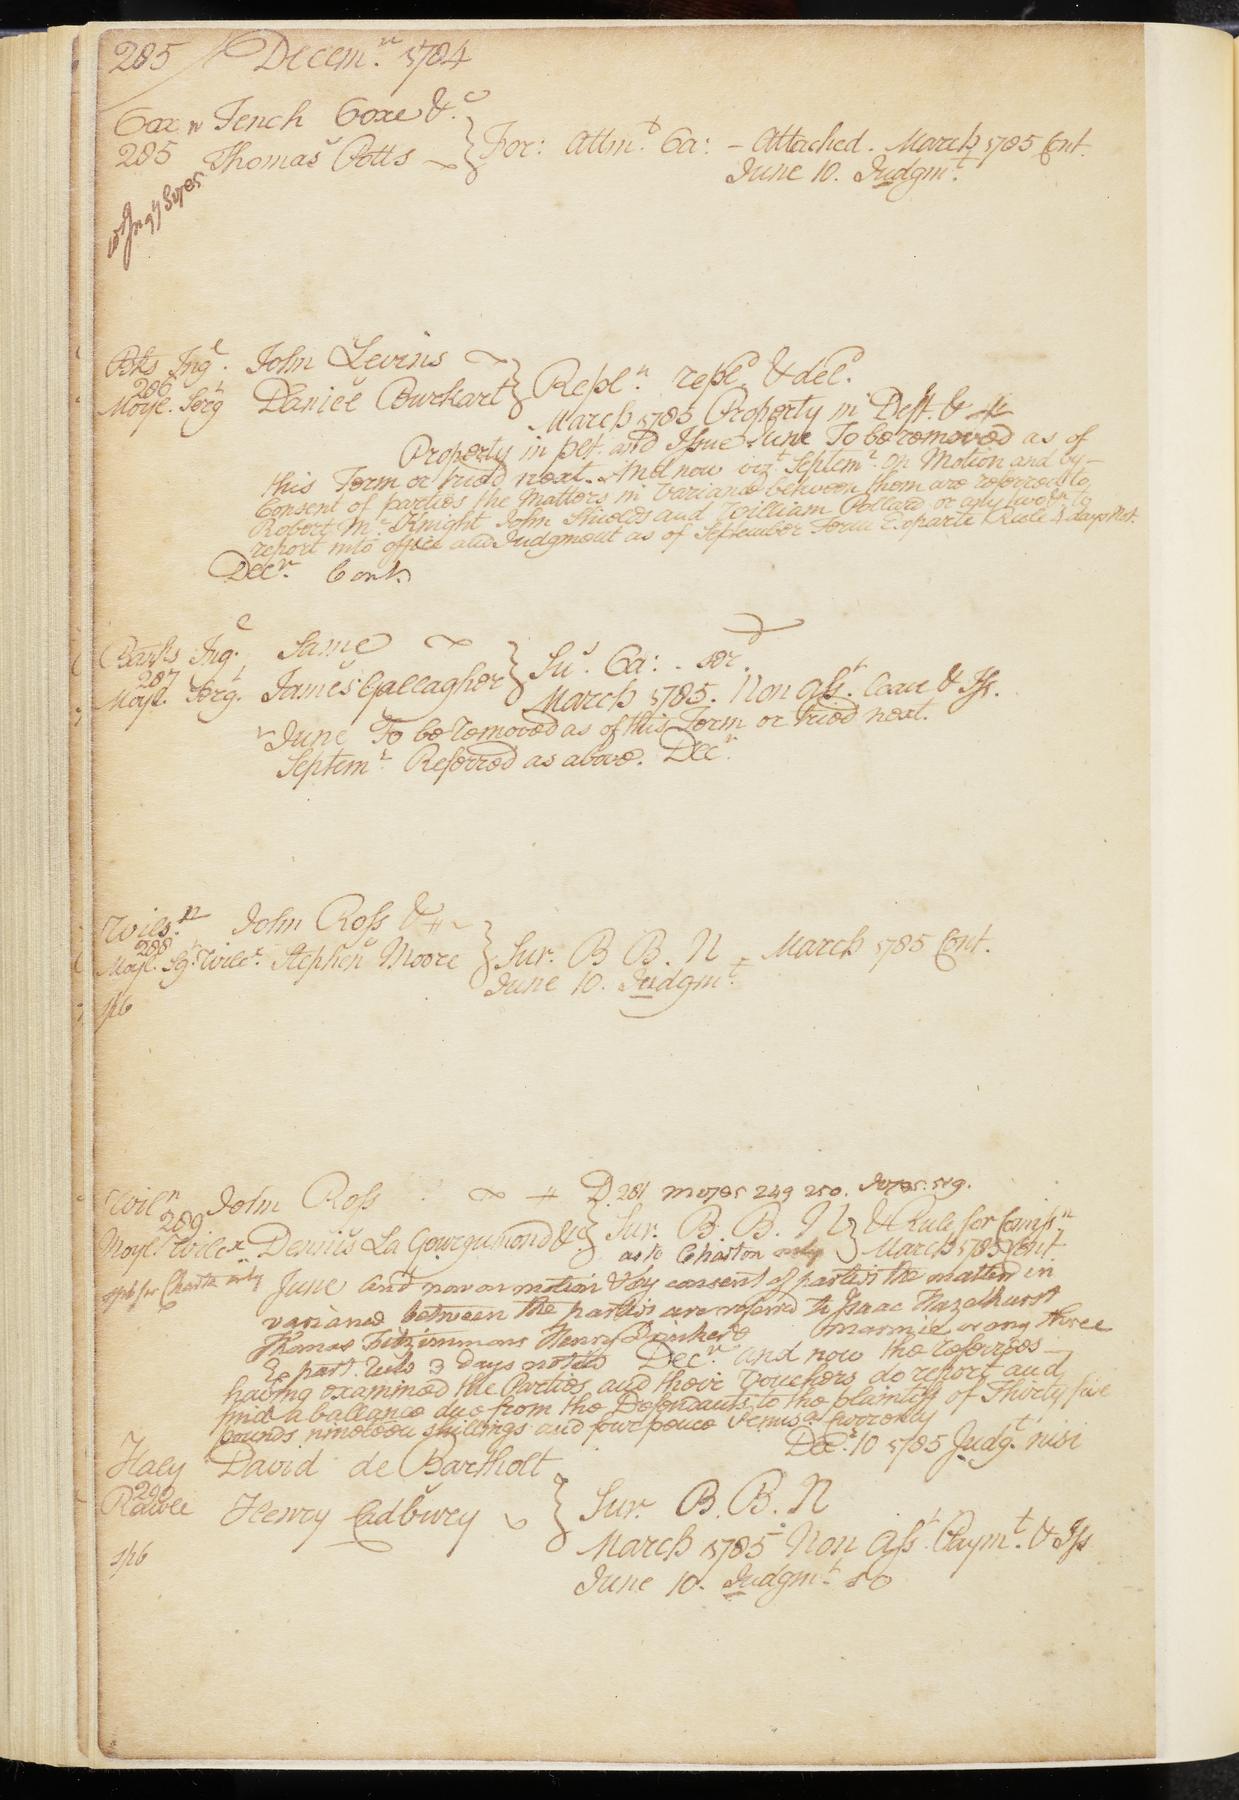 285 / Decem.r 1784
Coxe Tench Coxe &c
285 Thomas Potts } For: Attmt. Ca: - Attached. March 1785 Cont.
June 10. Judgmt.
Bks Inge. John Levins
286
Moyl. Serg Daniel Burkart } Repln. repld. & deld.
March 1785 Property in Deft. &
Property in Def. and Issue June To be removed as of
this Term or tried next. And now vizt. Septemr. on Motion and by
Consent of parties the Matters in Variance between them are referred to
Robert Mc. Knight John Shields and William Pollard or any two to
report into office and Judgment as of September Term Exparte Rule 4 days Not.
Decr. Cont.
Banks Inge. Same
287
Moyl. Sergt. James Gallagher } Sus. Ca: - ser.
March 1785. Non Asst. leave & Iss.
June To be removed as of this Term or tried next.
Septemr. Referred as above. Decr.
Wils.n John Ross &
288
Moyl. Sgt. Wilcx. Stephen Moore } Sur. B. B. N - March 1785 Cont.
June 10. Judgmt.
Wiln John Ross D 281
289
Moyl. Wilcx Dennis La Gourgumond & } Sur. B. B. N } & Rule for Comissn.
as to Charton only March 1785 Cont
for Charton only June And now on motion & by consent of parties the matters in
variance between the parties are referred to Isaac Hazelhurst
Thomas Fitzimmons Henry Drinker or any three
Ex part. Rule 3 days notice Decr. And now the referees
having examined the Parties and their Vouchers do report and
find a ballance due from the Defendants to the plaintiff of Thirty five
pounds nineteen shillings and four pence
Decr. 10 1785 Judgt. nisi
Haly David de Bartholt
290
Rawle Henry Cadbury } Sur. B. B. N
March 1785 Non Asst. Paymt. & Iss
June 10. Judgmt.